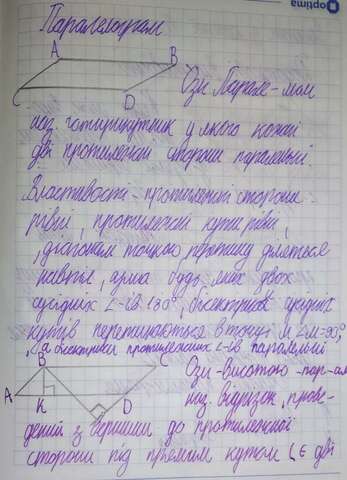 optima
Паралелограм
A B
C D
Озн. Парал-мом
наз. чотирикутник у якого кожні
дві протилежні сторони паралельні.
Властивості - протилежні сторони
рівні, протилежні кути рівні,
діагоналі точкою перетину діляться
навпіл, сума будь яких двох
сусідніх ∠-ів 180°, бісектриси сусідніх
кутів перетинаються в точці M ∠M=90°,
, а бісектриси протилежних ∠-ів паралельні
B C
A K D
Озн - висотою - пар-ма
наз. відрізок, прове-
дений з вершини до протилежної
сторони під прямим кутом (є дві